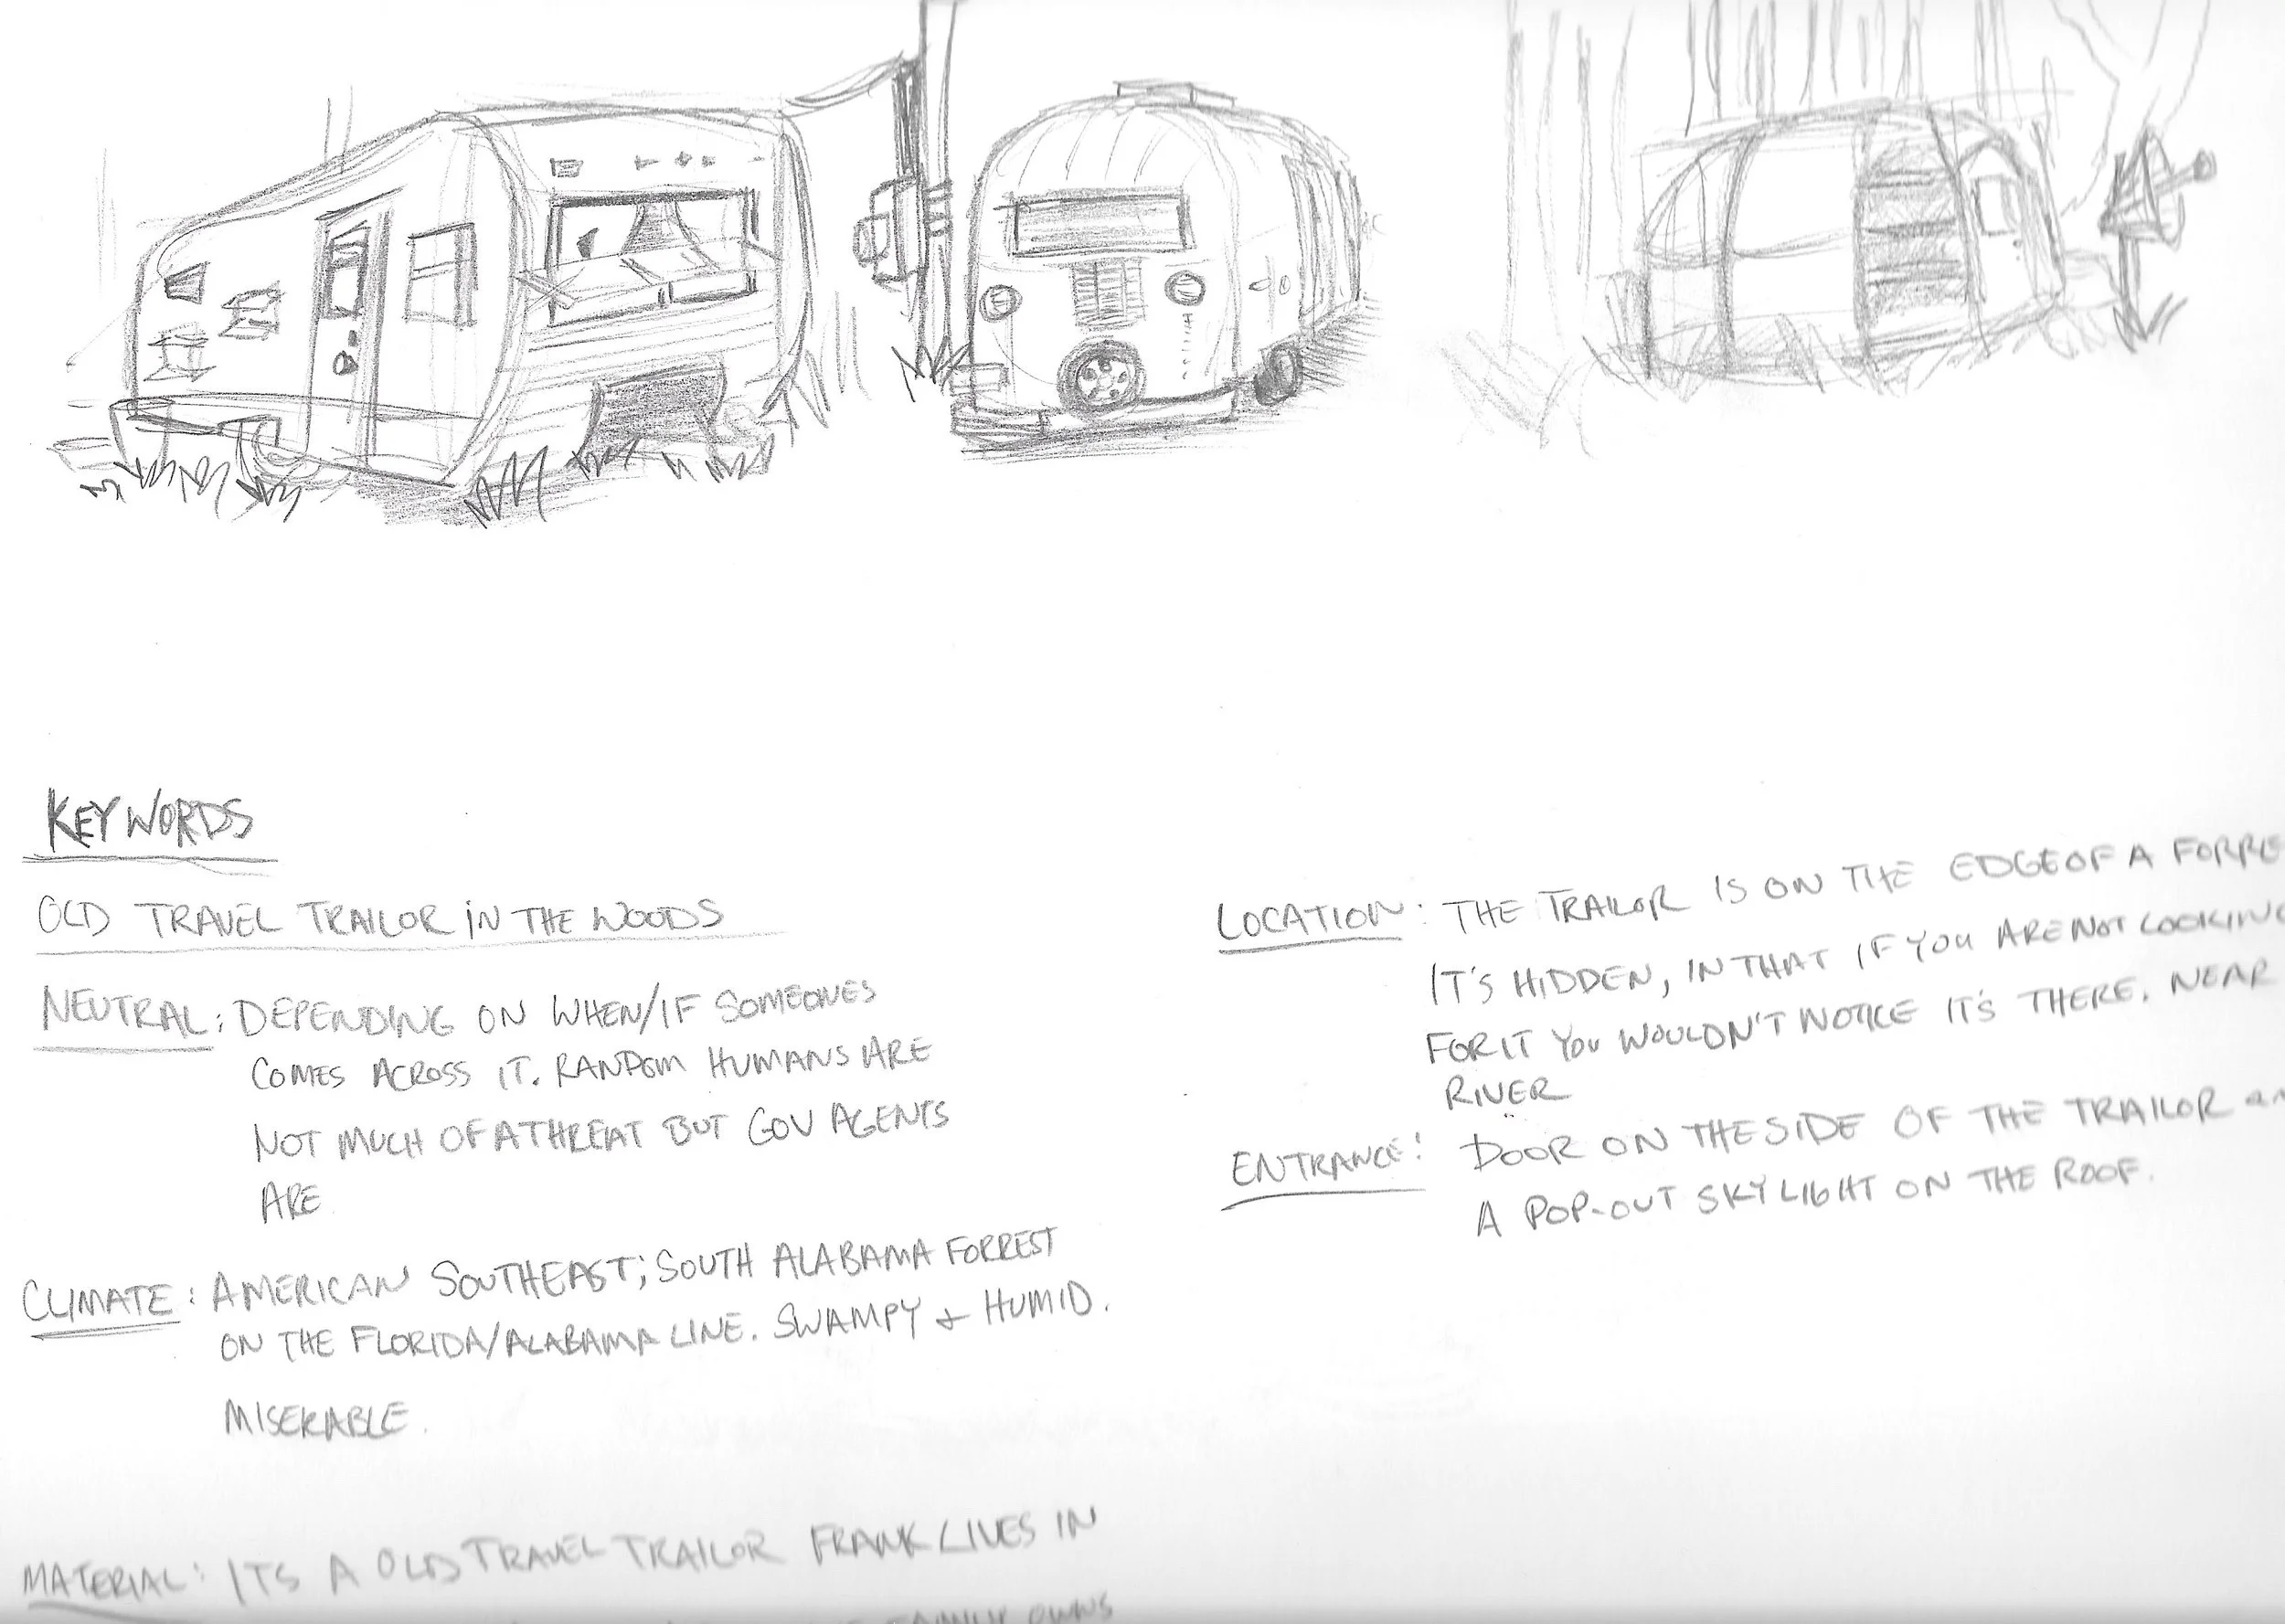 KEY WORDS
OLD TRAVEL TRAILOR IN THE WOODS
NEUTRAL: DEPENDING ON WHEN/IF SOMEONES
COMES ACROSS IT. RANDOM HUMANS ARE
NOT MUCH OF A THREAT BUT GOV AGENTS
ARE
CLIMATE: AMERICAN SOUTHEAST; SOUTH ALABAMA FORREST
ON THE FLORIDA/ALABAMA LINE. SWAMPY + HUMID.
MISERABLE.
MATERIAL: ITS A OLD TRAVEL TRAILOR FRANK LIVES IN
FAMILY OWNS
LOCATION: THE TRAILOR IS ON THE EDGE OF A FORRE
IT'S HIDDEN, IN THAT IF YOU ARE NOT LOOKING
FOR IT YOU WOULDN'T NOTICE IT'S THERE. NEAR
RIVER
ENTRANCE: DOOR ON THE SIDE OF THE TRAILOR
A POP-OUT SKYLIGHT ON THE ROOF.